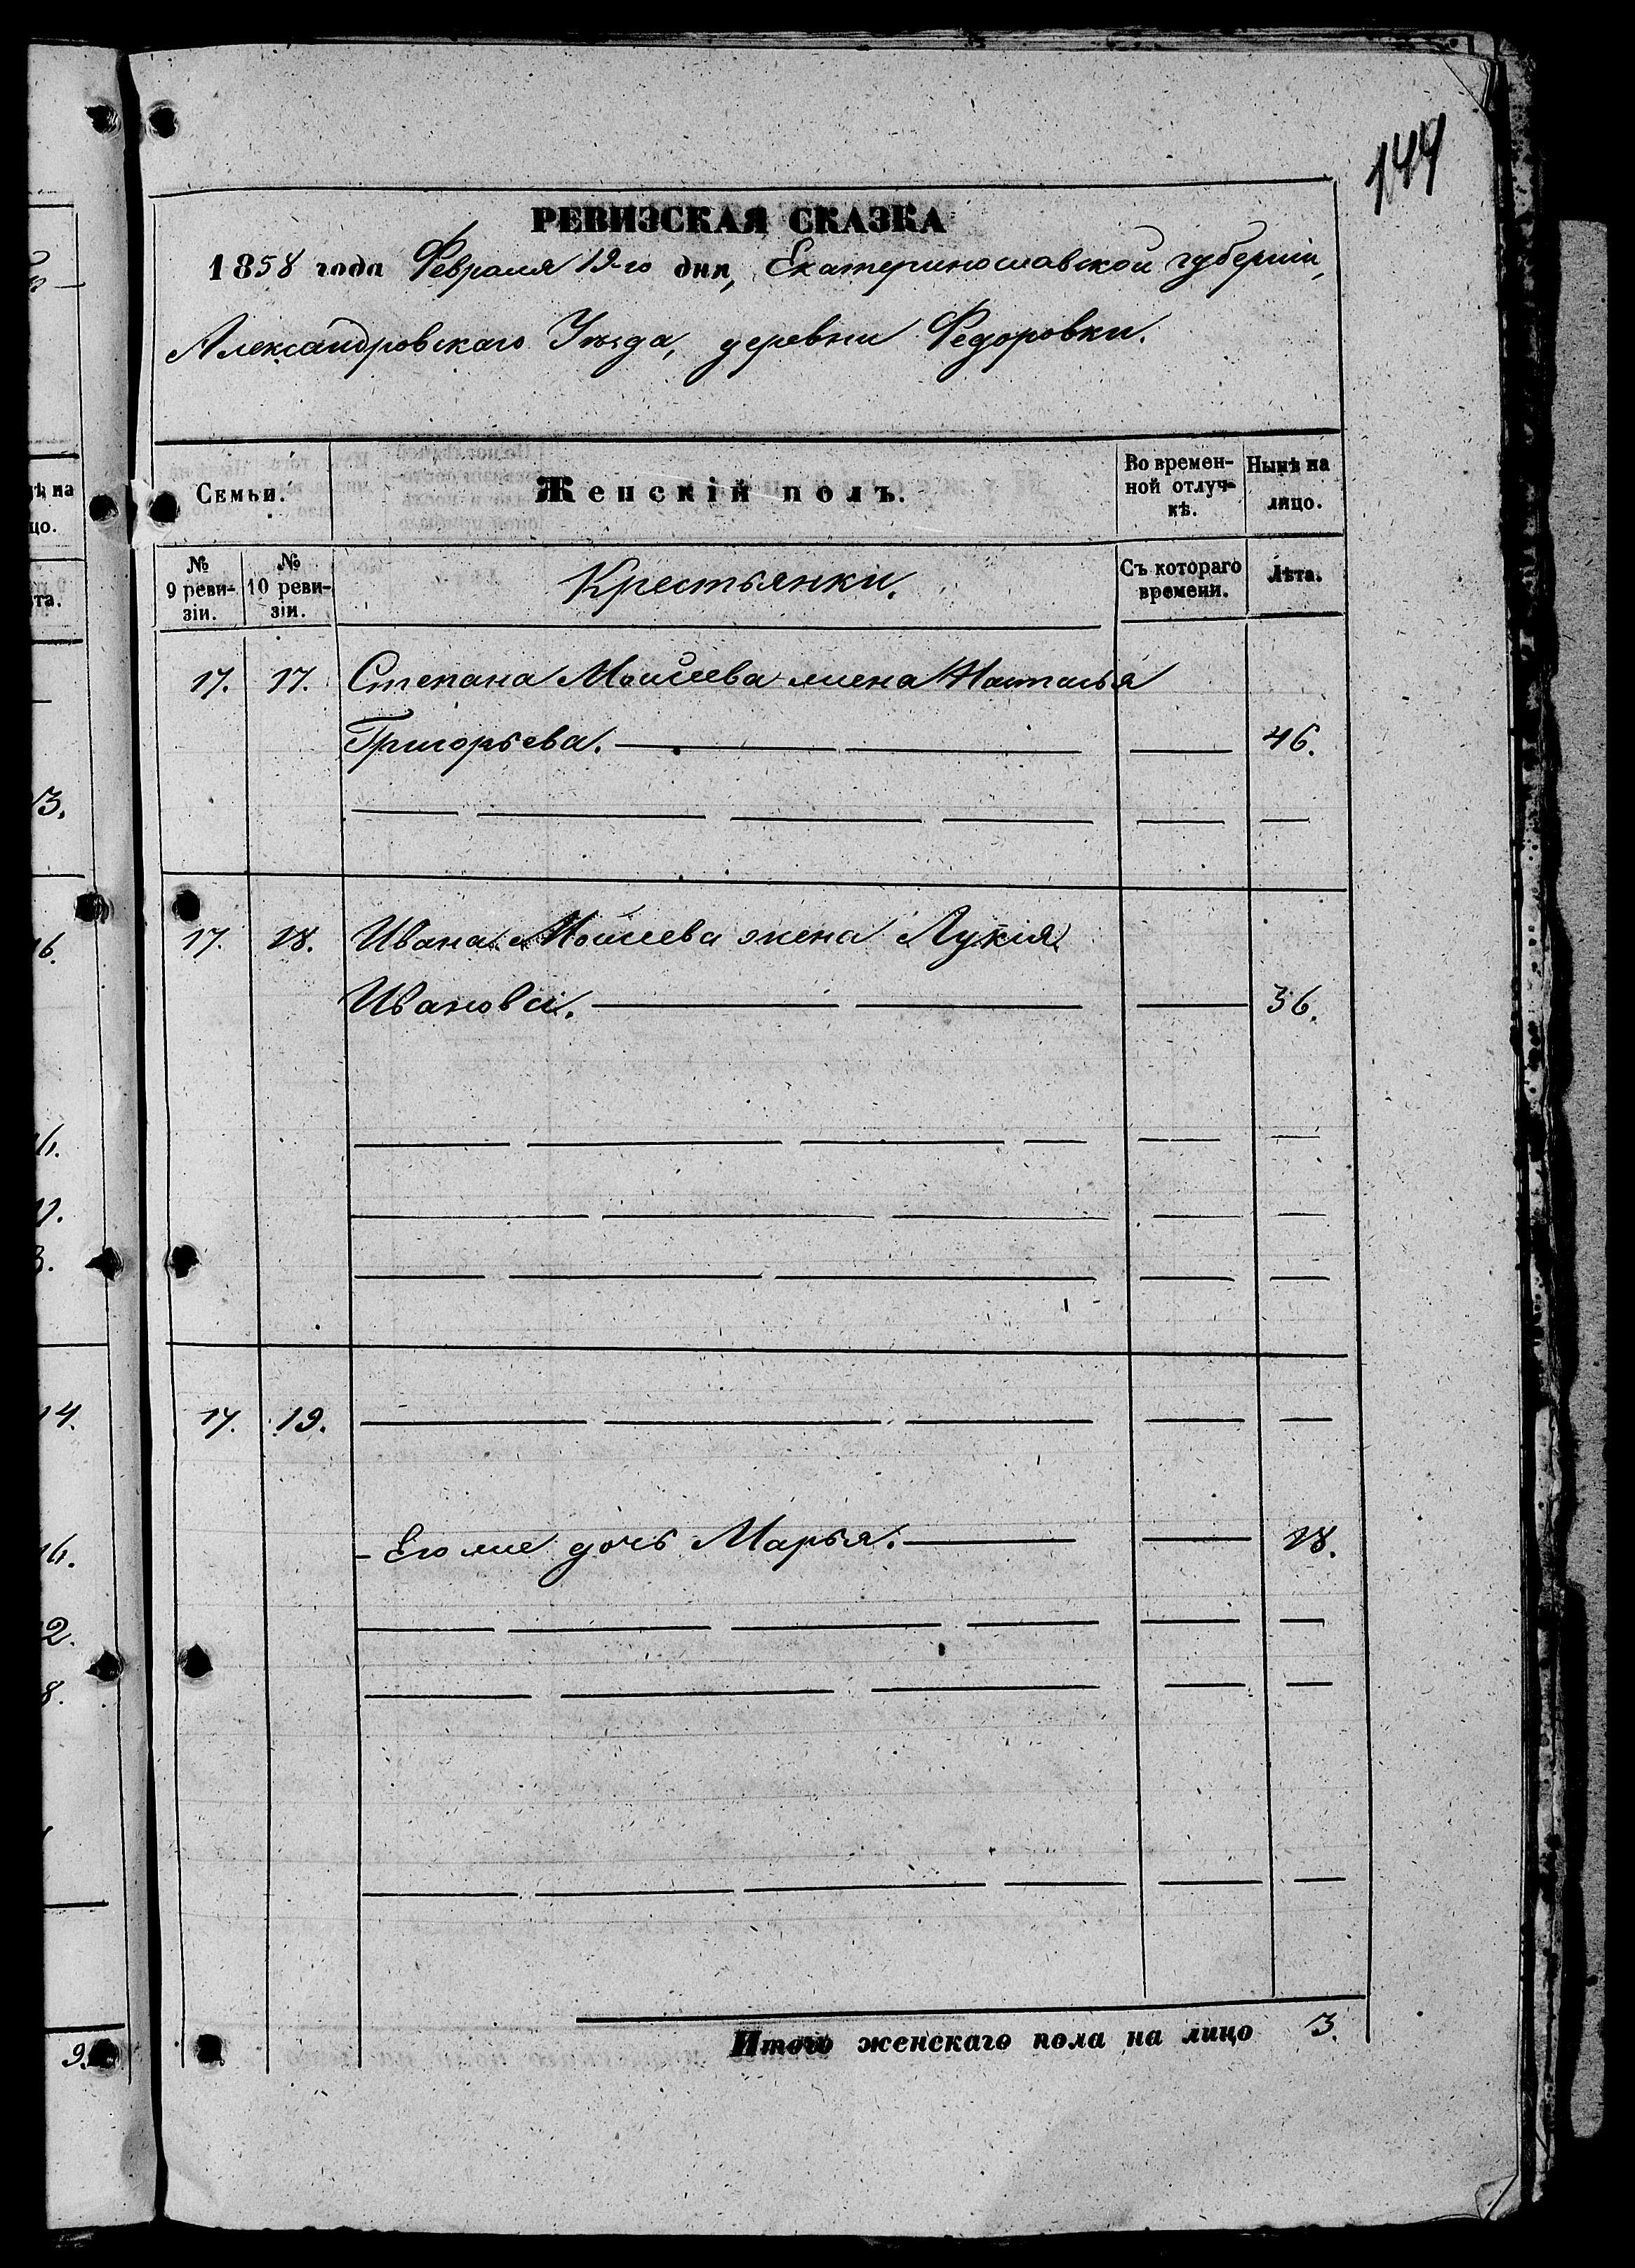 144
РЕВИЗСКАЯ СКАЗКА
1858 года Февраля 19-го дня, Екатеринославской губерніи,
Александровскаго Уѣзда, деревни Федоровки.
Семьи.
Женскій полъ.
Во времен-
ной отлуч-
кѣ.
Нынѣ на
лицо.
№
9 реви-
зіи.
№
10 реви-
зіи.
Крестьянки.
Съ котораго
времени.
Лѣта.
17. 17. Степана Моисеева жена Настасья
Григорьева. 46.
17. 18. Ивана Моисеева жена Лукія
Иванова. 36.
17. 19.
Его же дочь Марья. 18.
Итого женскаго пола на лицо 3.